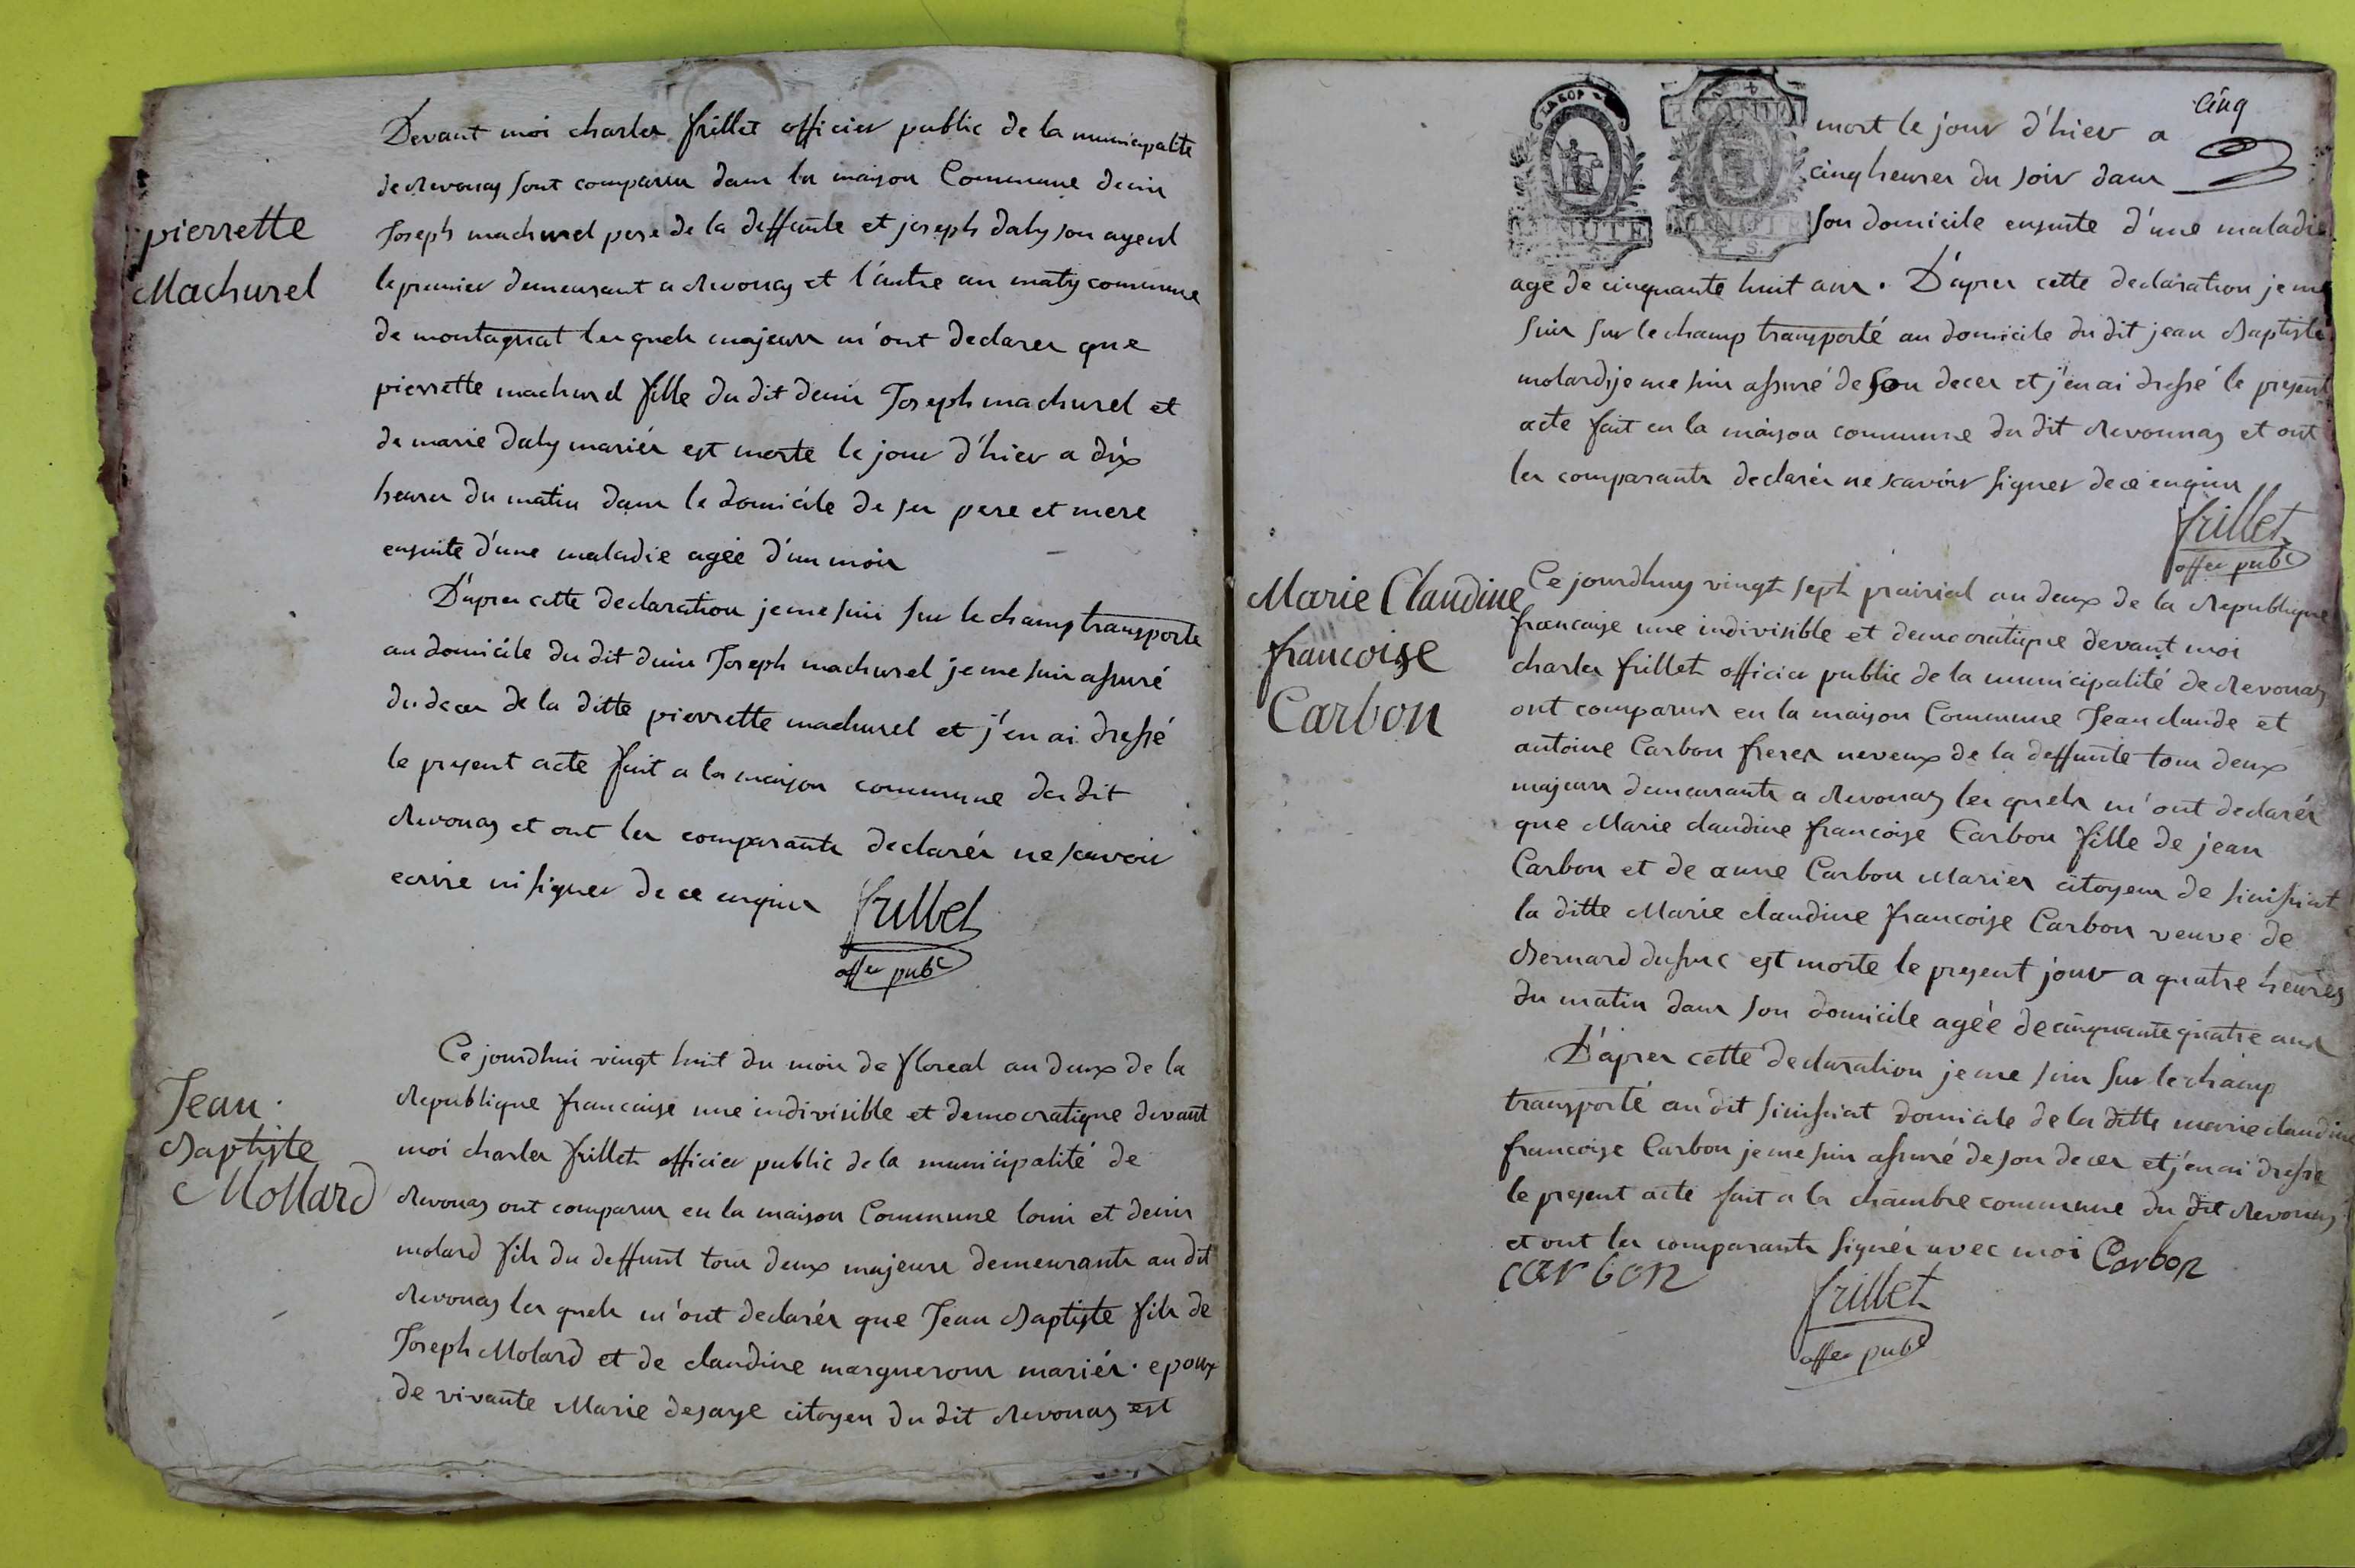 pierrette
Machurel
Devant moi charles frillet officier public de la municipalite
de Revonas sont comparus dans la maison Commune denis
Joseph machurel pere de la deffunte et joseph daly son ayeul
le premier demeurant a Revonas et l'autre au maty commune
de montagnat les quels majeurs m'ont declares que
pierrette machurel fille du dit denis Joseph machurel et
de marie daly mariés est morte le jour d'hier a dix
heures du matin dans le domicile de ses pere et mere
ensuite d'une maladie agée d'un mois
D'apres cette declaration je me suis sur le champ transporte
au domicile du dit denis Joseph machurel je me suis assuré
du deces de la ditte pierrette machurel et j'en ai dressé
le present acte fait a la maison commune du dit
Revonas et ont les comparants declarés ne scavoir
ecrire ni signer de ce enquis frillet
offer pubc
Jean
Baptiste
Mollard
Ce jourdhui vingt huit du mois de floreal an deux de la
Republique francaise une indivisible et democratique devant
moi charles frillet officier public de la municipalité de
Revonas ont comparus en la maison Commune louis et denis
molard fils du deffunt tous deux majeurs demeurants au dit
Revonas les quels m'ont declarés que Jean Baptiste fils de
Joseph Molard et de claudine margueron mariés. epoux
de vivante Marie desaye citoyen du dit Revonas est
cinq
mort le jour d'hier a
cinq heures du soir dans
son domicile ensuite d'une maladie
MINUTE
age de cinquante huit ans. D'apres cette declaration je me
suis sur le champ transporté au domicile du dit jean Baptiste
molard je me suis assuré de son deces et j'en ai dressé le present
acte fait en la maison commune du dit Revonnas et ont
les comparants declarés ne scavoir signer de ce enquis
frillet
offer pubc
Marie Claudine
francoise
Carbon
Ce jourdhuy vingt sept prairial an deux de la Republique
francaise une indivisible et democratique devant moi
charles frillet officier public de la municipalité de Revonas
ont comparus en la maison Commune Jean claude et
antoine Carbon freres neveux de la deffunte tous deux
majeurs demeurants a Revonas les quels m'ont declarés
que Marie claudine francoise Carbon fille de jean
Carbon et de anne Carbon Mariés citoyens de sinissiat
la ditte Marie claudine francoise Carbon veuve de
Bernard dusuc est morte le present jour a quatre heures
du matin dans son domicile agée de cinquante quatre ans
D'apres cette declaration je me suis sur le champ
transporté au dit sinissiat domicile de la ditte marie claudine
francoise Carbon je me suis assuré de son deces et j'en ai dressé
le present acte fait a la chambre commune du dit Revonas
et ont les comparants signés avec moi Carbon
carbon
frillet
offer pubc